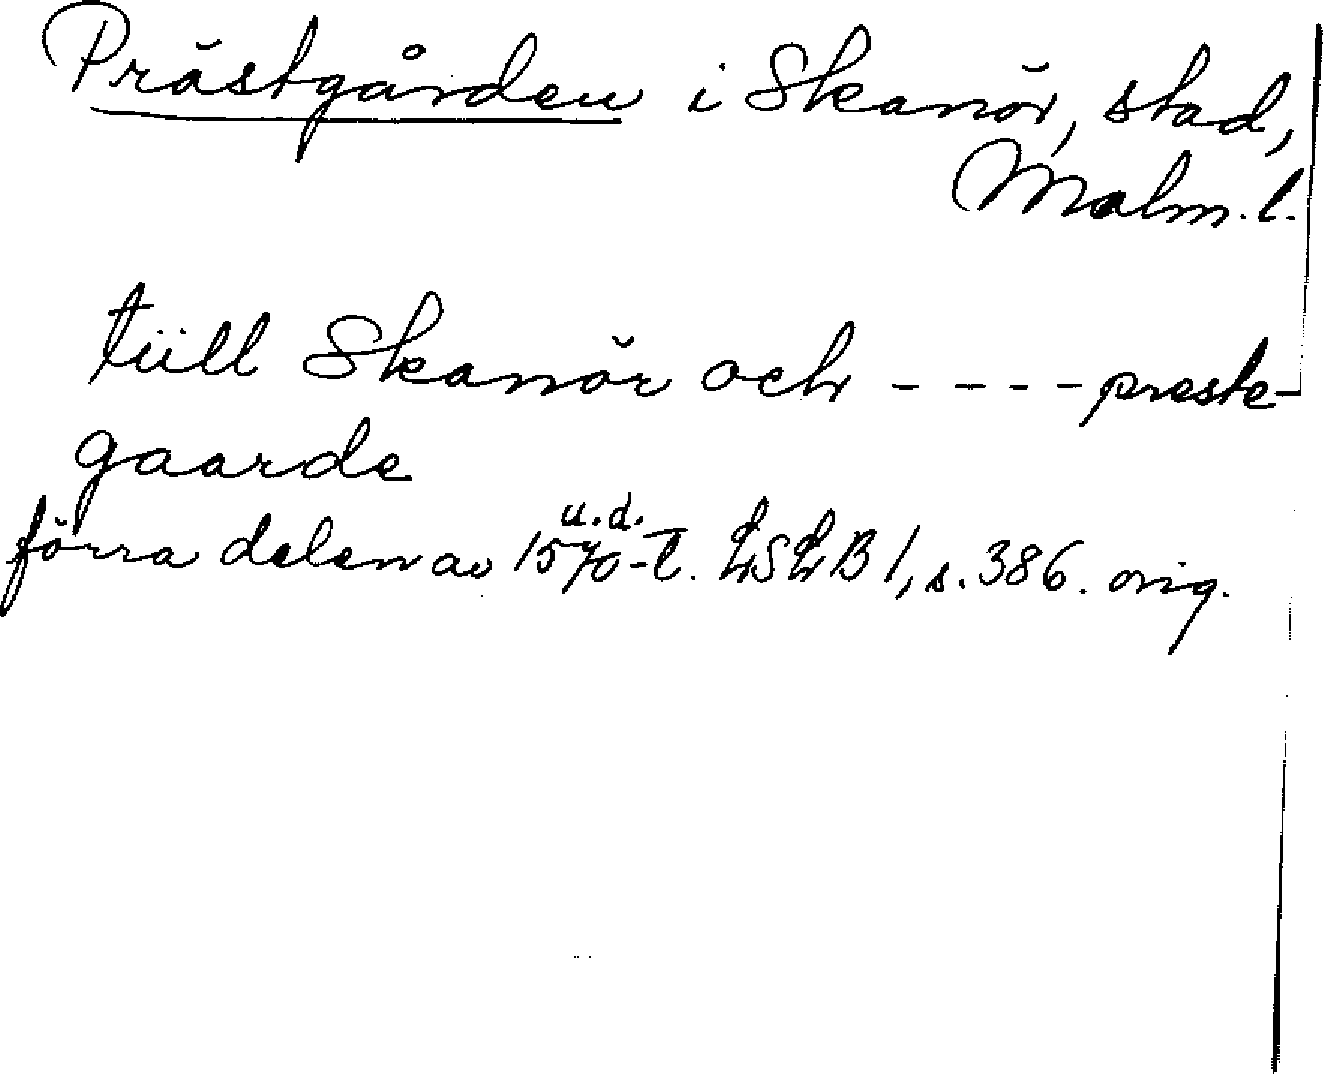 Prästgården i Skanör, stad,
Malm. l.
tüll Skanör och - - - - preste-
gaarde
u. d.
förra delen av 1570-t. LSLB 1, s. 386. orig.